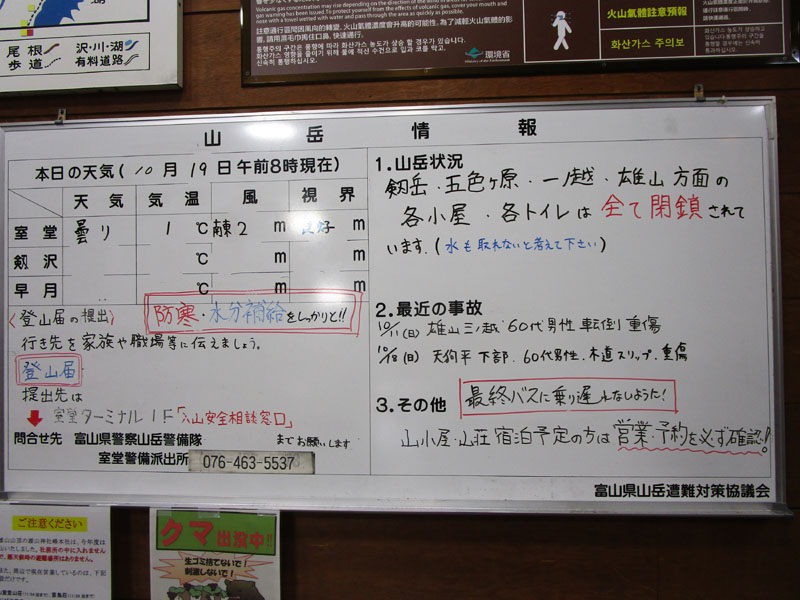 尾根
歩道
沢・川・湖
有料道路
火山氣體註意預報
화산가스 주의보
環境省
山岳情報
本日の天気(10月19日午前8時現在)
天気 気温 風 視界
室堂 曇り 1℃ 南東2m 良好 m
剱沢 ℃ m m
早月 ℃ m m
防寒・水分補給をしっかりと!!
〈登山届の提出〉
行き先を家族や職場等に伝えましょう。
登山届
提出先は
室堂ターミナル1F「入山安全相談窓口」
までお願いします
問合せ先 富山県警察山岳警備隊
室堂警備派出所 076-463-5537
1.山岳状況
剱岳・五色ヶ原・一ノ越・雄山方面の
各小屋・各トイレは全て閉鎖されて
います。(水も取れないと考えて下さい)
2.最近の事故
10/11(日)雄山三ノ越・60代男性 転倒 重傷
10/18(日)天狗平下部・60代男性・木道スリップ・重傷
3.その他 最終バスに乗り遅れなしように!
山小屋・山荘 宿泊予定の方は営業・予約を必ず確認!
富山県山岳遭難対策協議会
ご注意ください
クマ出没中!!
生ゴミ捨てないで!
刺激しないで!